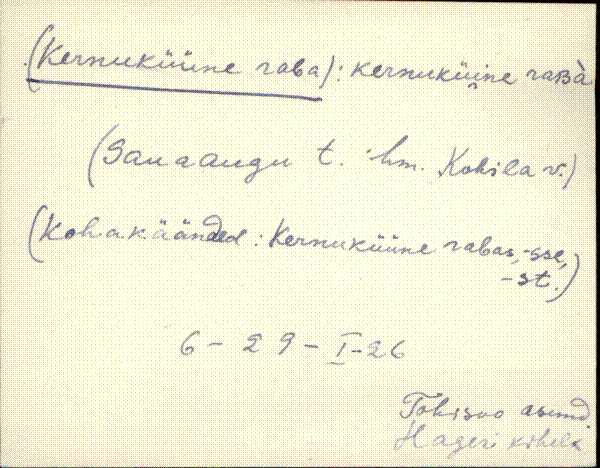 (Kernuküüne raba): kernuküi̯ne raʙà
(Sauaaugu t. hm. Kohila v.)
(Kohakäänded: Kernuküüne rabas, -sse,
-st.)
6 - 29 - I - 26
Tohisoo asund.
Hageri kihelk